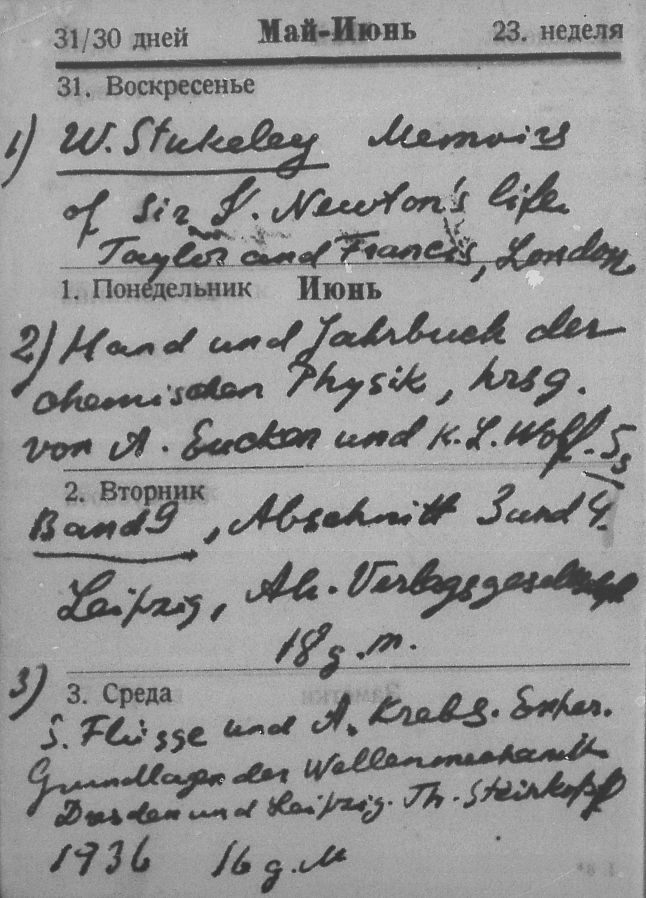 31/30 дней Май-Июнь 23. неделя
31. Воскресенье
1) W. Stukeley Memoirs
of Sir I. Newton's life
Taylor and Francis, London
1. Понедельник Июнь
2) Hand und Jahrbuch der
chemischen Physik, hrsg.
von A. Eucken und K. L. Wolf.
2. Вторник
Band 9, Abschnitt 3 und 4.
Leipzig, Ak. Verlagsgesellschaft
18 g. m.
3) 3. Среда
S. Flügge und A. Krebs. Exper.
Grundlagen der Wellenmechanik
Dresden und Leipzig. Th. Steinkopff
1936 16 g. M